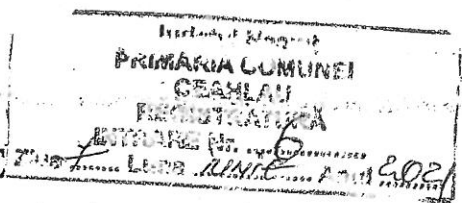 PRIMARIA COMUNEI
CEAHLAU
REGISTRATURA
INTRARE Nr. 6
Ziua 7 Luna IUNIE Anul 2021